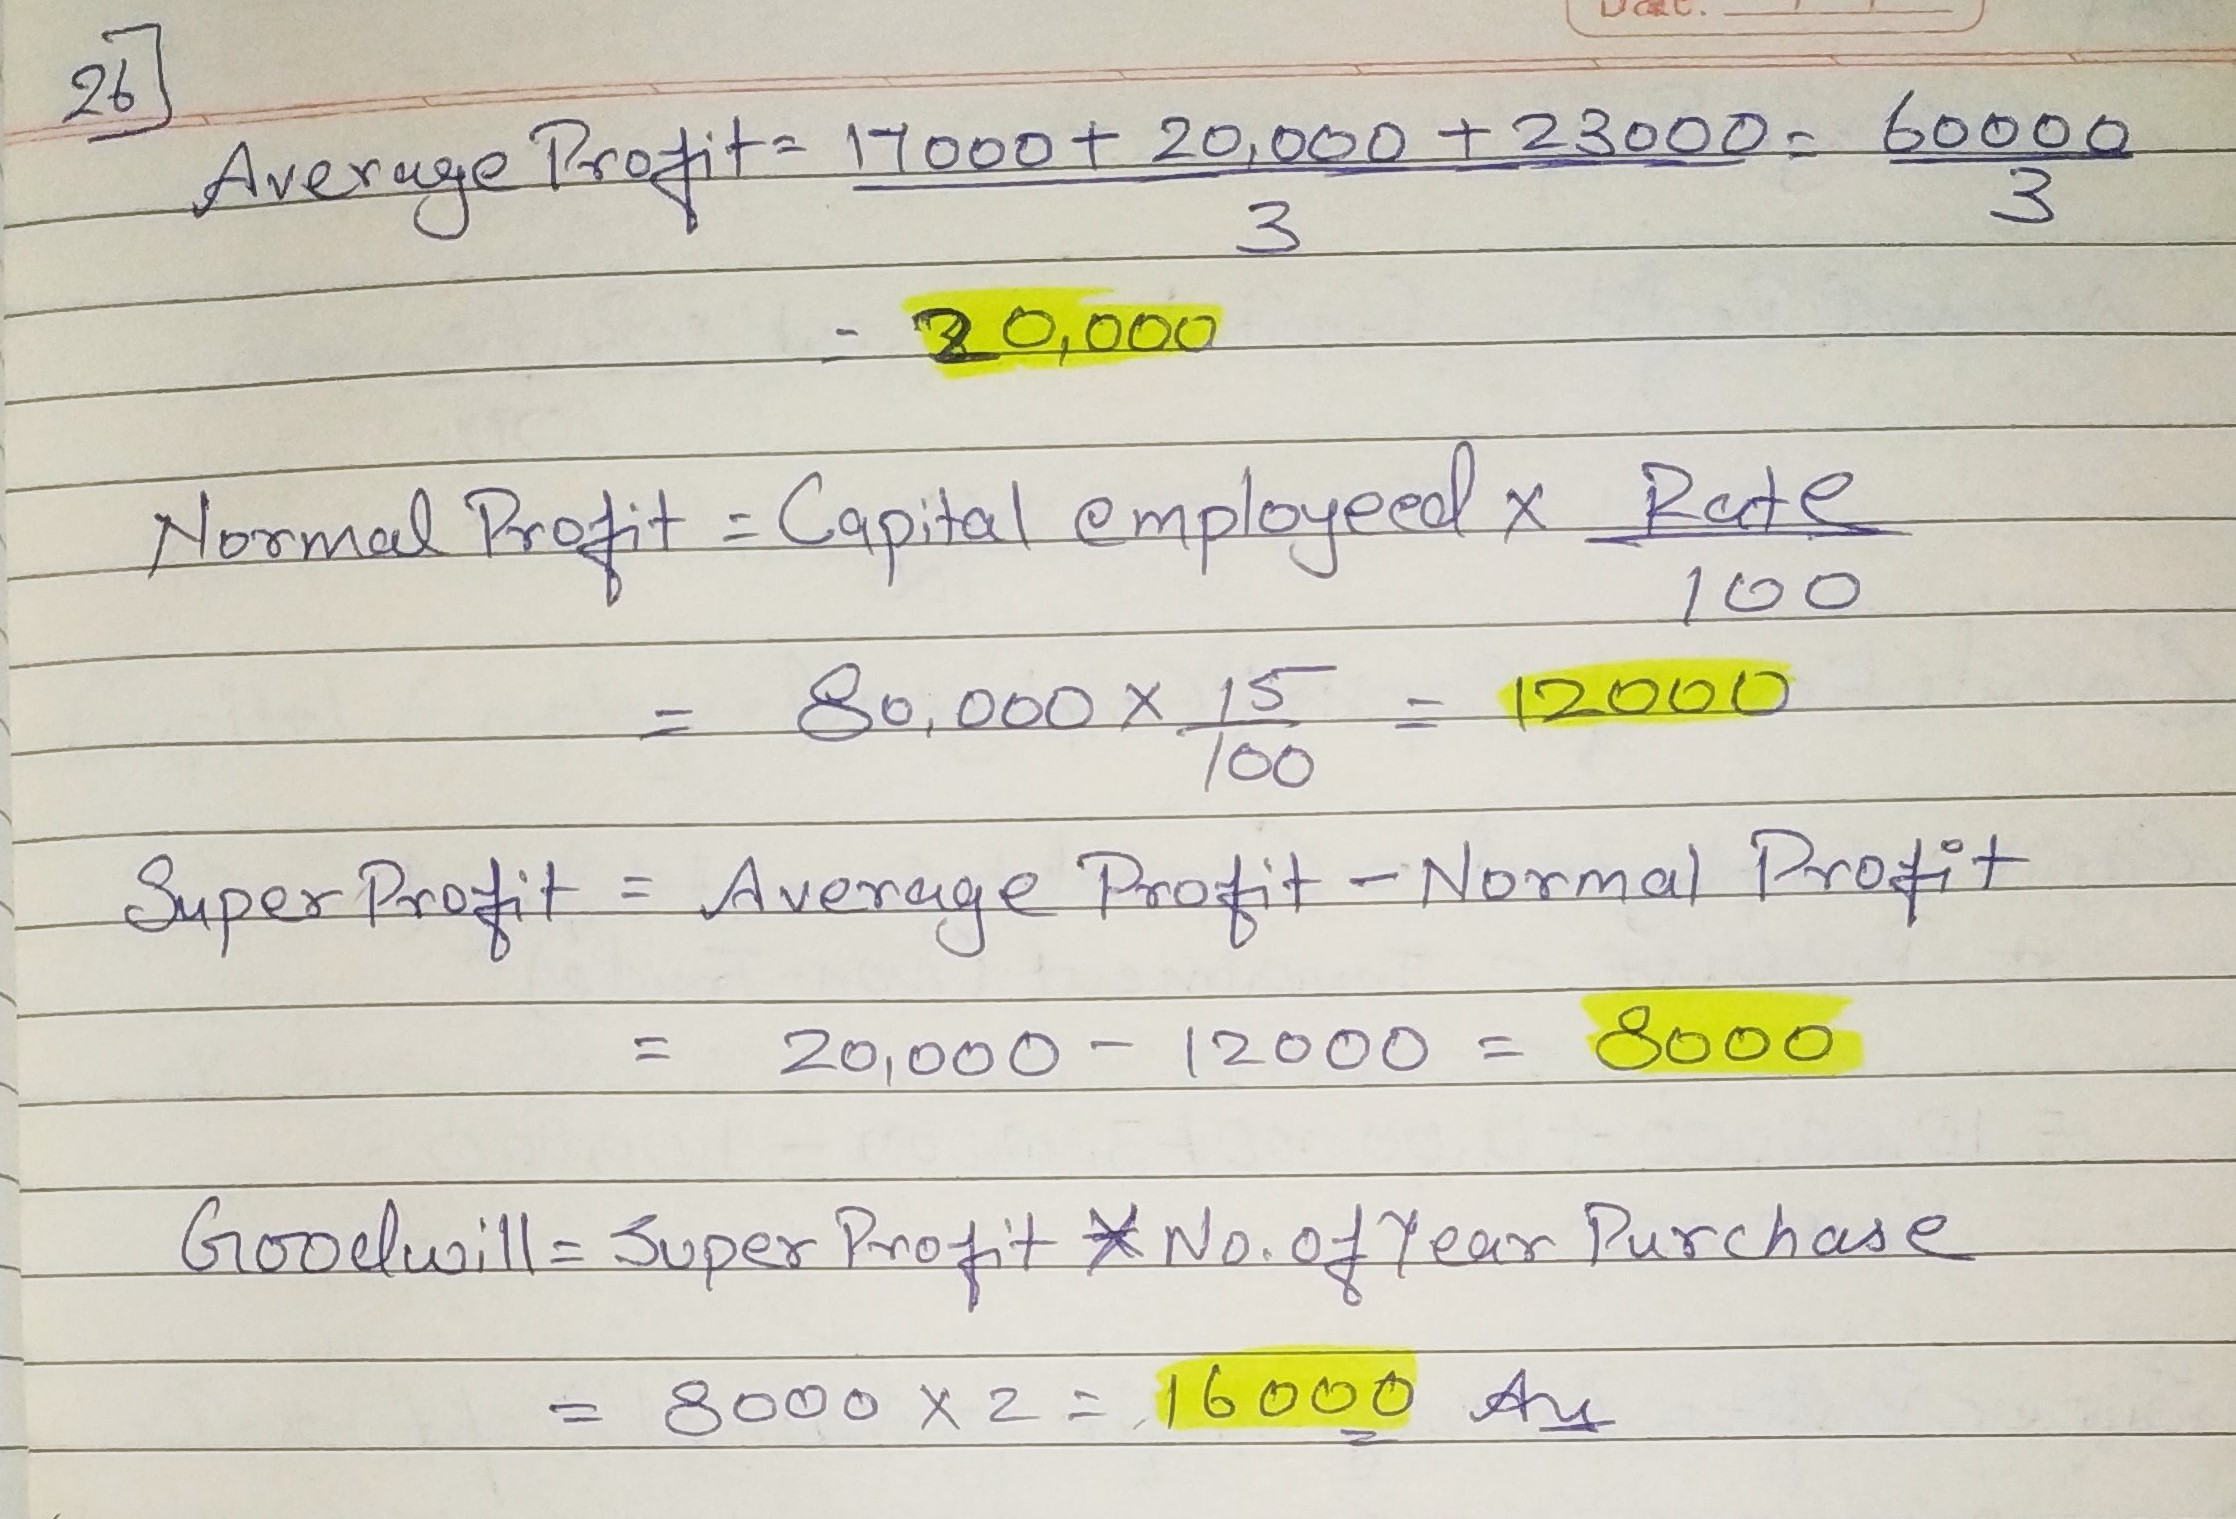 Date.
26]
Average Profit = 17000 + 20,000 + 23000 = 60000
3 3
= 20,000
Normal Profit = Capital employeed x Rate
100
= 80,000 x 15 = 12000
100
Super Profit = Average Profit - Normal Profit
= 20,000 - 12000 = 8000
Goodwill = Super Profit x No. of Year Purchase
= 8000 x 2 = 16000 Ans